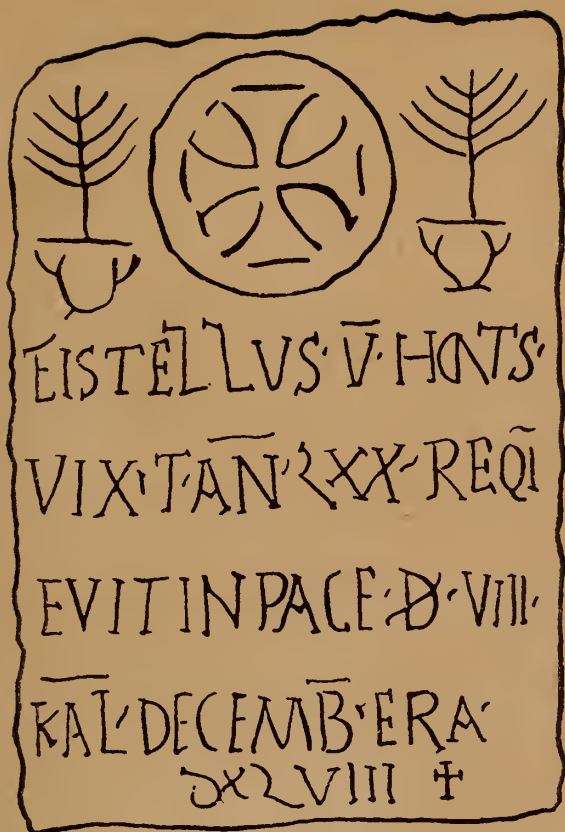 EISTELLVS· V̅· HONTS·
VIX·T·A̅N̅· LXX· REQI̅
EVIT IN PACE· Đ· VIII·
K̅A̅L· DECEMB̅· ERA·
DXLVIII ✝